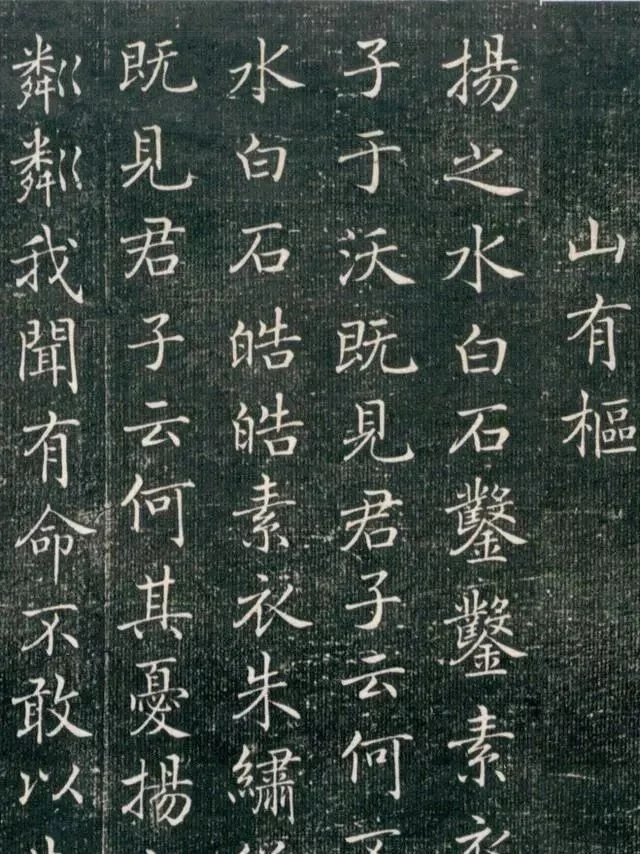 山有樞
揚之水白石鑿鑿素衣
子于沃既見君子云何
水白石皓皓素衣朱繡
既見君子云何其憂揚
粼粼我聞有命不敢以